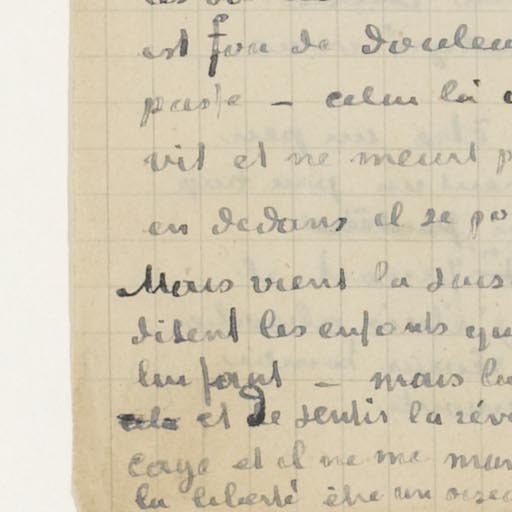 est fou de douleu
passe — celui là
vit et ne meurt p
en dedans il se po
Mais vient la sais
disent les enfants qu
l'enfant — mais la
et de sentir la rév
cage et il ne me man
la liberté être un oisea